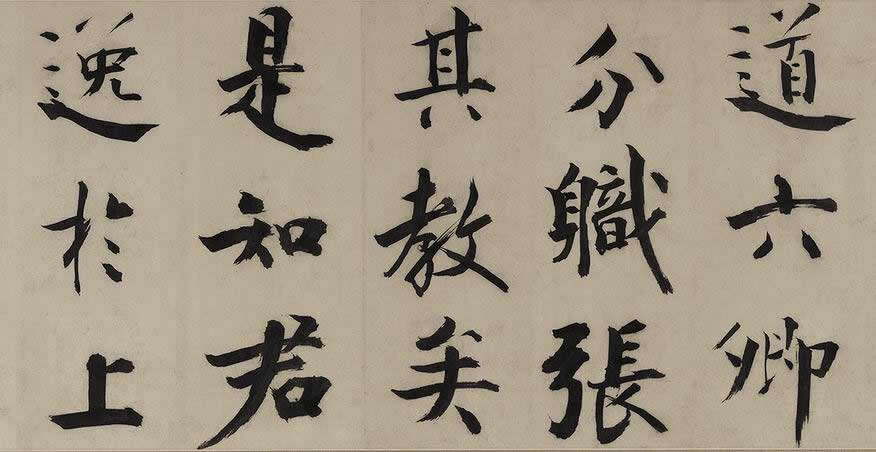 道六卿
分職張
其教矣
是知君
逸於上